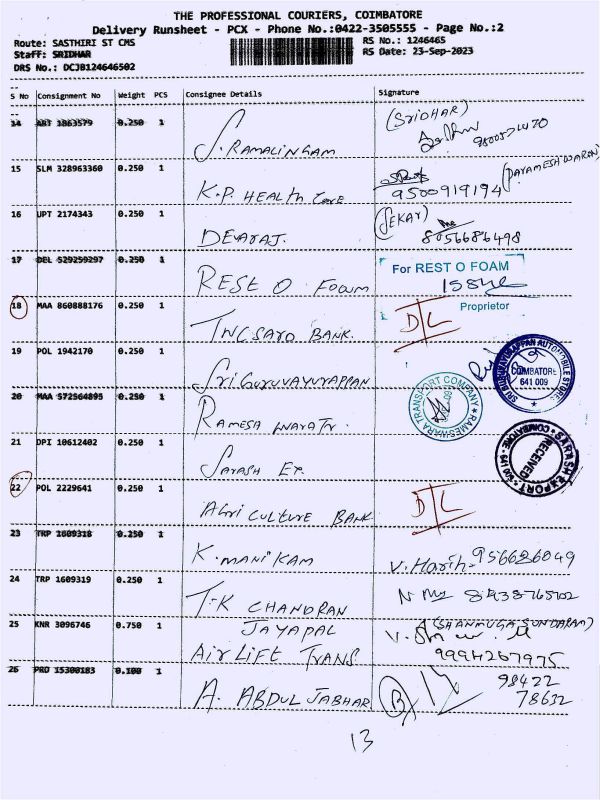 THE PROFESSIONAL COURIERS, COIMBATORE
Delivery Runsheet - PCX - Phone No.:0422-3505555 - Page No.:2
Route: SASTHIRI ST CMS
RS No.: 1246465
Staff: SRIDHAR
RS Date: 23-Sep-2023
DRS No.: DCJB124646502
S No Consignment No Weight PCS Consignee Details Signature
14 ABT 1863579 0.250 1 S. RAMALINGAM (SRIDHAR)
15 SLM 328963360 0.250 1 K.P. HEALTH Care 9500919194 (PARAMESWARAN)
16 UPT 2174343 0.250 1 DEVARAJ. (SEKAR) 8056686498
17 DEL 529259297 0.250 1 REST O FOAM For REST O FOAM
Proprietor
18 MAA 860888176 0.250 1 BANK. D/L
19 POL 1942170 0.250 1 Sri GURUVAYURAPPAN SRI GURUVAYURAPPAN AUTOMOBILE STORES COIMBATORE 641 009
20 MAA 572564895 0.250 1 RAMESWARA Tr. RAMESWARA TRANSPORT COMPANY
21 DPI 10612402 0.250 1 SARASH EX. SARASH EXPORT COIMBATORE - 641 009 RECEIVED
22 POL 2229641 0.250 1 AGRI CULTURE BANK D/L
23 TRP 1609318 0.250 1 K. MANIKAM V. Harih
24 TRP 1609319 0.250 1 T.K CHANDRAN
25 KNR 3096746 0.750 1 JAYAPAL (SHANMUGA SUNDARAM)
AIR LIFT TRANS. 9994267975
26 PRD 15300183 0.100 1 A. ABDUL JABHAR 98422
78632
13